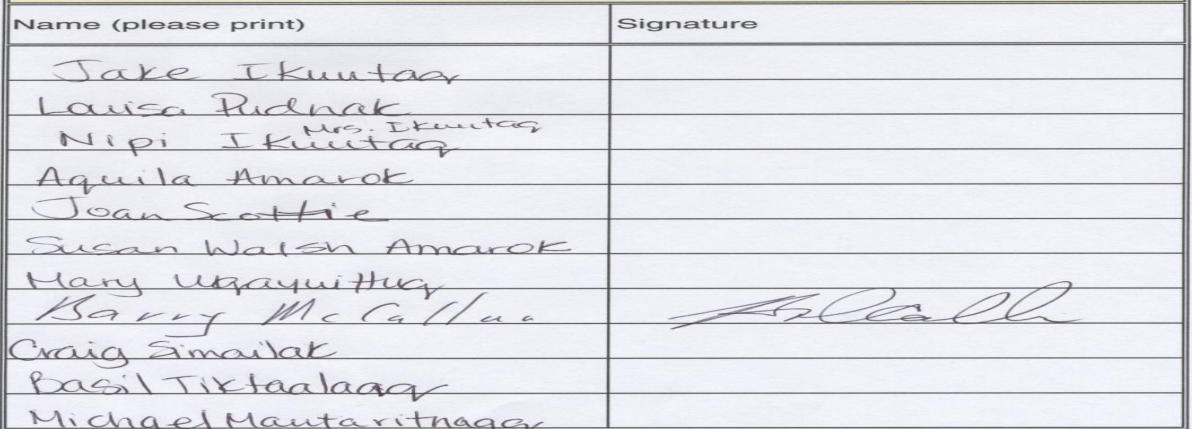 Name (please print) Signature
Jake Ikuutaq
Louisa Pudnak
Mrs. Ikuutaq
Nipi Ikuutaq
Aquila Amarok
Joan Scottie
Susan Walsh Amarok
Mary Uqayuittuq
Barry McCallum
Craig Simailak
Basil Tiktaalaaq
Michael Mautaritnaaq